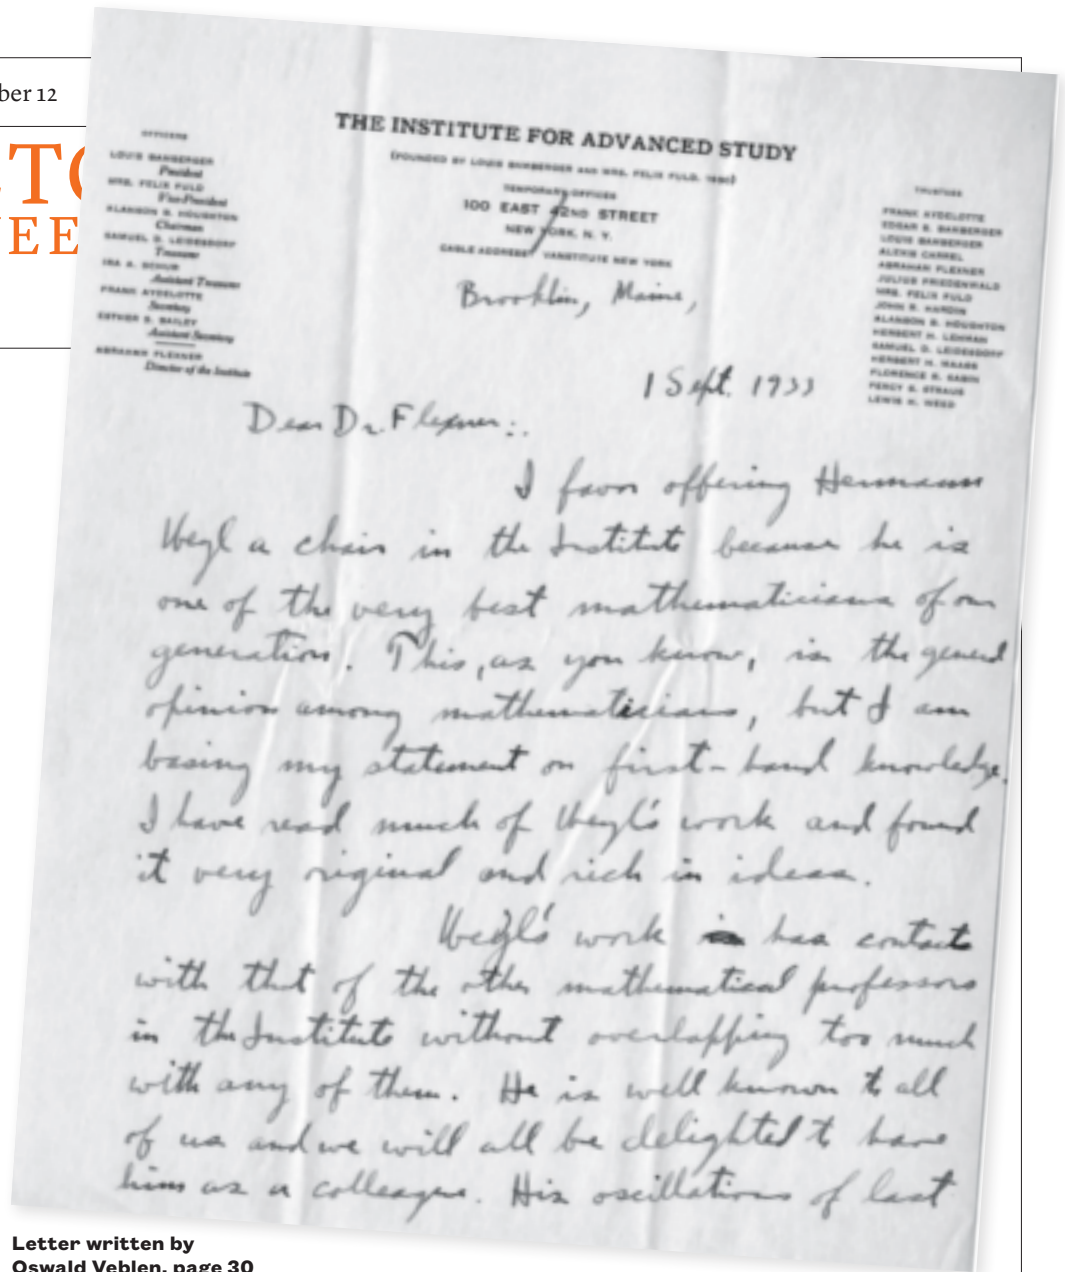 ber 12
THE INSTITUTE FOR ADVANCED STUDY
(FOUNDED BY LOUIS BAMBERGER AND MRS. FELIX FULD, 1930)
TEMPORARY OFFICES
100 EAST 42ND STREET
NEW YORK, N. Y.
CABLE ADDRESS: VANSTITUTE NEW YORK
OFFICERS
LOUIS BAMBERGER
President
MRS. FELIX FULD
Vice-President
ALANSON B. HOUGHTON
Chairman
SAMUEL D. LEIDESDORF
Treasurer
IRA A. SCHUR
Assistant Treasurer
FRANK AYDELOTTE
Secretary
ESTHER S. BAILEY
Assistant Secretary
ABRAHAM FLEXNER
Director of the Institute
TRUSTEES
FRANK AYDELOTTE
EDGAR S. BAMBERGER
LOUIS BAMBERGER
ALEXIS CARREL
ABRAHAM FLEXNER
JULIUS FRIEDENWALD
MRS. FELIX FULD
JOHN R. HARDIN
ALANSON B. HOUGHTON
HERBERT H. LEHMAN
SAMUEL D. LEIDESDORF
HERBERT H. MAASS
FLORENCE R. SABIN
PERCY S. STRAUS
LEWIS H. WEED
Brooklin, Maine,
1 Sept. 1933
Dear Dr. Flexner:
I favor offering Hermann
Weyl a chair in the Institute because he is
one of the very best mathematicians of our
generation. This, as you know, is the general
opinion among mathematicians, but I am
basing my statement on first-hand knowledge.
I have read much of Weyl's work and found
it very original and rich in ideas.
Weyl's work has contacts
with that of the other mathematical professors
in the Institute without overlapping too much
with any of them. He is well known to all
of us and we will all be delighted to have
him as a colleague. His oscillations of last
Letter written by
Oswald Veblen, page 30